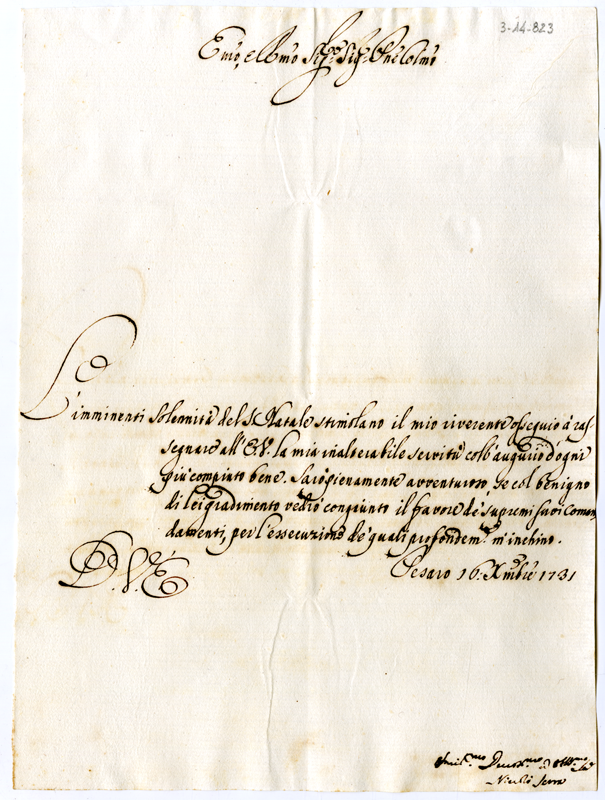 3-14-823
Emo, e Rmo Sig.re Sig.re Pne Colmo
L'imminenti Solennità del S. Natale stimolano il mio riverente ossequio à ras
segnare all'E.V. la mia inalterabile servitù coll'augurij d'ogni
più compiuto bene. Sarò pienamente avventuroso se col benigno
di lei gradimento vedrò congiunto il favore de' supremi suoi Coman,
damenti, per l'essecuzione de quali profondem.te m'inchino.
Pesaro 16: Xmbre 1731
D.V.E.
Umil.mo Devot.mo Obblmo
Nicolò Serra